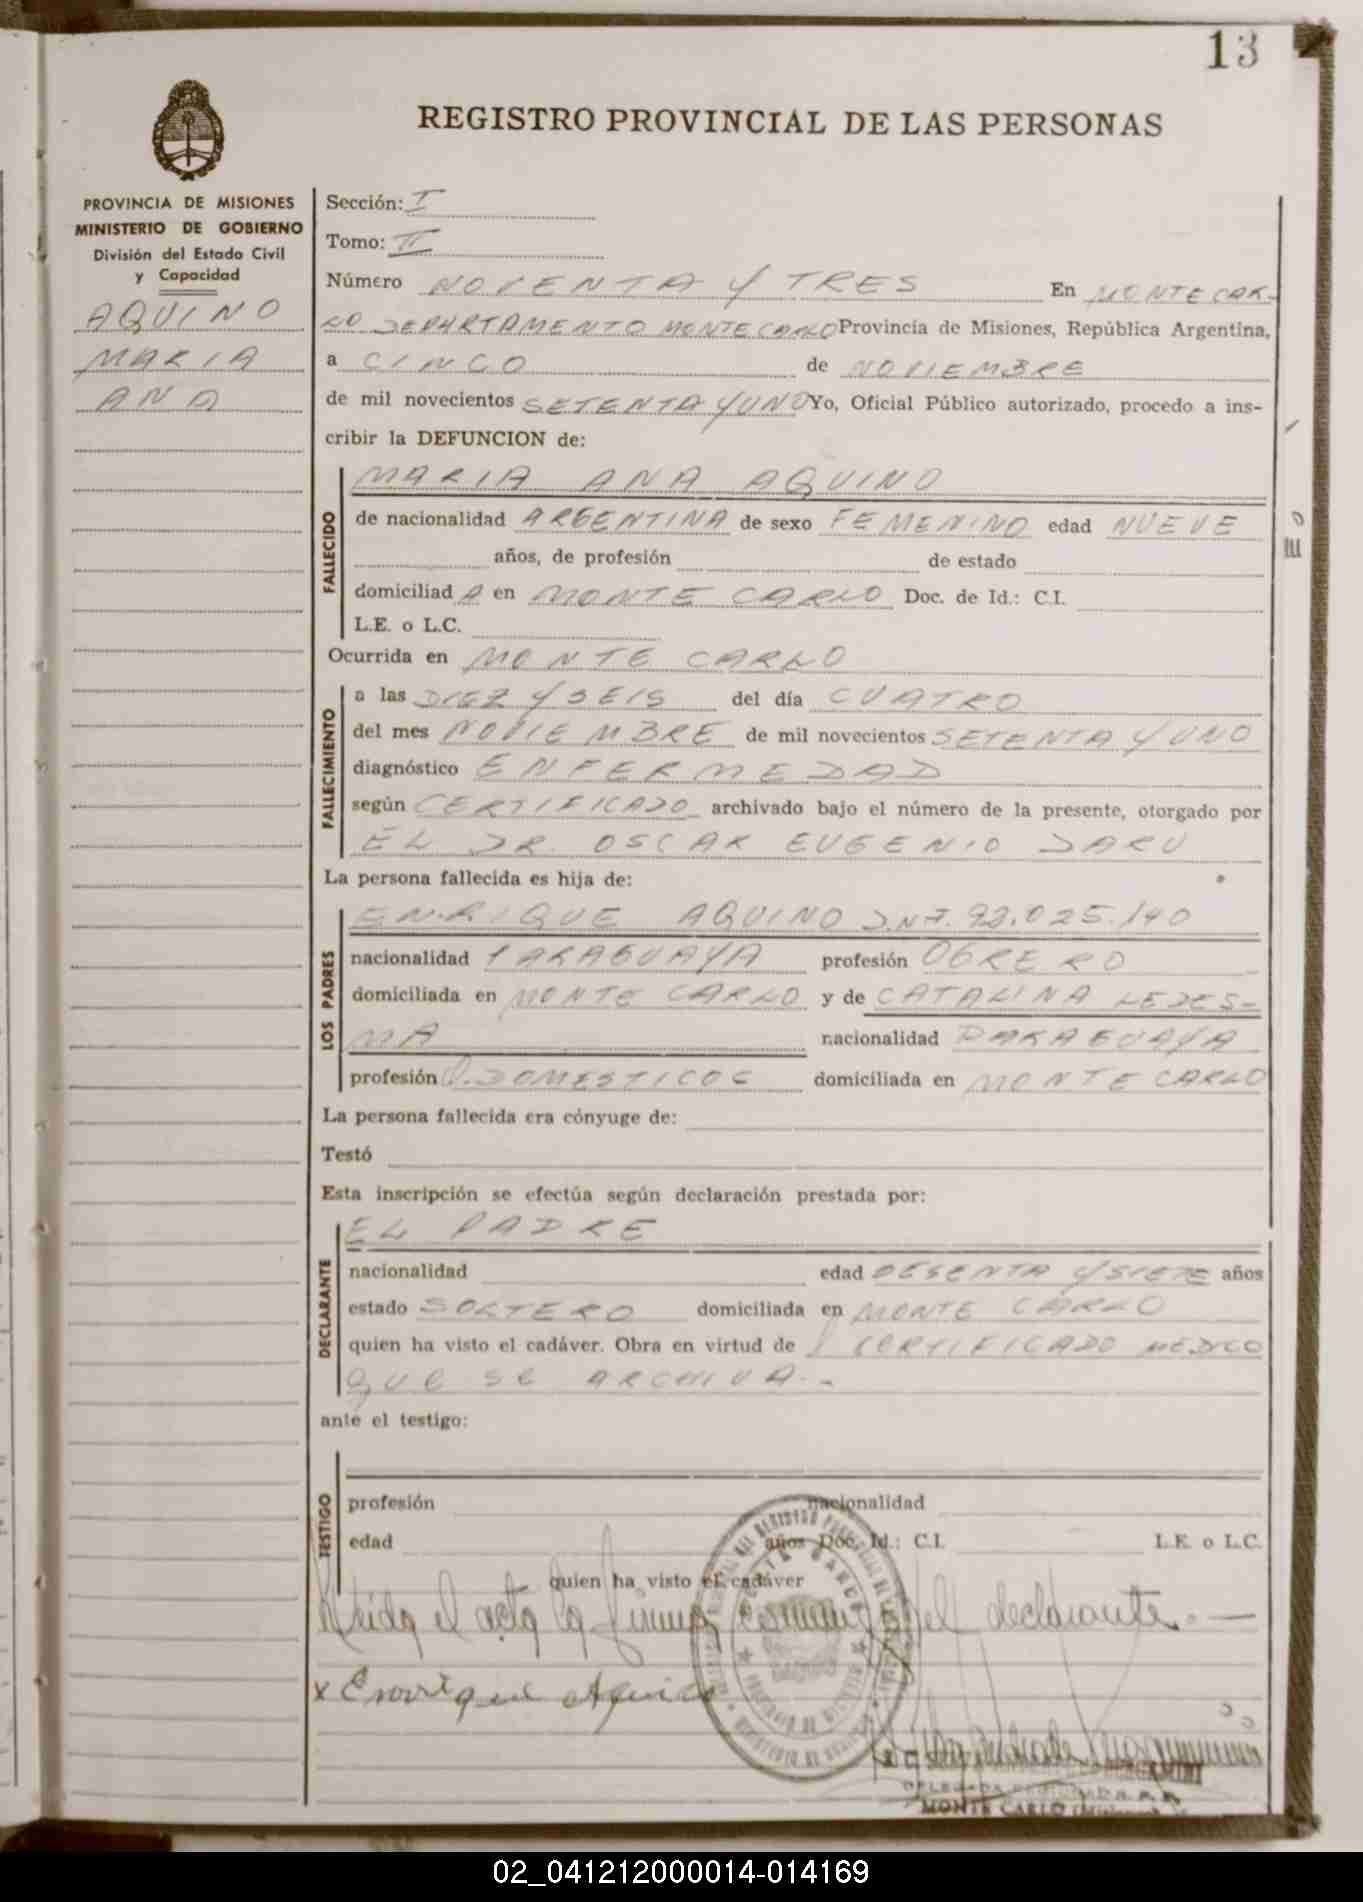 13
REGISTRO PROVINCIAL DE LAS PERSONAS
PROVINCIA DE MISIONES
MINISTERIO DE GOBIERNO
División del Estado Civil
y Capacidad
AQUINO
MARIA
ANA
Sección: I
Tomo: II
Número NOVENTA Y TRES En MONTECAR-
LO DEPARTAMENTO MONTECARLO Provincia de Misiones, República Argentina,
a CINCO de NOVIEMBRE
de mil novecientos SETENTA Y UNO Yo, Oficial Público autorizado, procedo a ins-
cribir la DEFUNCION de:
FALLECIDO
MARIA ANA AQUINO
de nacionalidad ARGENTINA de sexo FEMENINO edad NUEVE
años, de profesión de estado
domiciliad A en MONTE CARLO Doc. de Id.: C.I.
L.E. o L.C.
Ocurrida en MONTE CARLO
FALLECIMIENTO
a las DIEZ Y SEIS del día CUATRO
del mes NOVIEMBRE de mil novecientos SETENTA Y UNO
diagnóstico ENFERMEDAD
según CERTIFICADO archivado bajo el número de la presente, otorgado por
EL DR. OSCAR EUGENIO DARU
La persona fallecida es hija de:
LOS PADRES
ENRIQUE AQUINO D.N.I. 92.025.140
nacionalidad PARAGUAYA profesión OBRERO
domiciliada en MONTE CARLO y de CATALINA LEDES-
MA nacionalidad PARAGUAYA
profesión Q. DOMESTICOS domiciliada en MONTE CARLO
La persona fallecida era cónyuge de:
Testó
Esta inscripción se efectúa según declaración prestada por:
DECLARANTE
EL PADRE
nacionalidad edad Y SIETE años
estado SOLTERO domiciliada en MONTE CARLO
quien ha visto el cadáver. Obra en virtud de CERTIFICADO MEDICO
QUE SE ARCHIVA.-
ante el testigo:
TESTIGO
profesión nacionalidad
edad años Doc. Id.: C.I. L.E. o L.C.
quien ha visto el cadáver
Leida el acta la firma conmigo el declarante.-
x Enrrique Aquino
MONTE CARLO
02_041212000014-014169